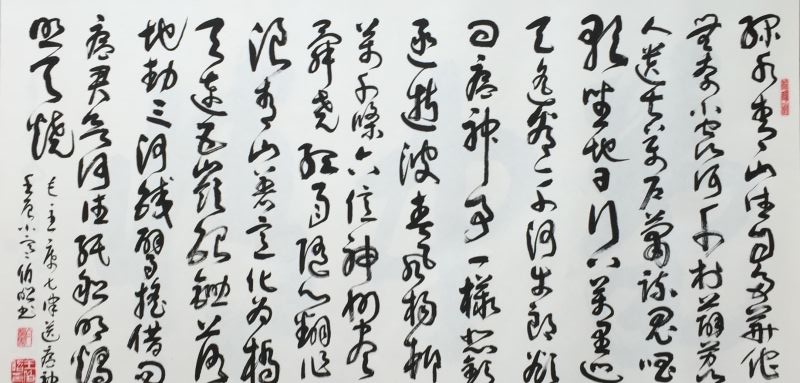 绿水青山枉自多華佗
無奈小虫何千村薜荔
人遗矢萬户萧疏鬼唱
歌坐地日行八萬里巡
天遥看一千河牛郎欲
问瘟神事一樣悲歡
逐逝波春風楊柳
萬千條六億神州盡
舜尧红雨随心翻作
浪青山着意化为橋
天连五岭银锄落
地动三河鐵臂摇借问
瘟君欲何往纸船明烛
照天烧
毛主席七律送瘟神